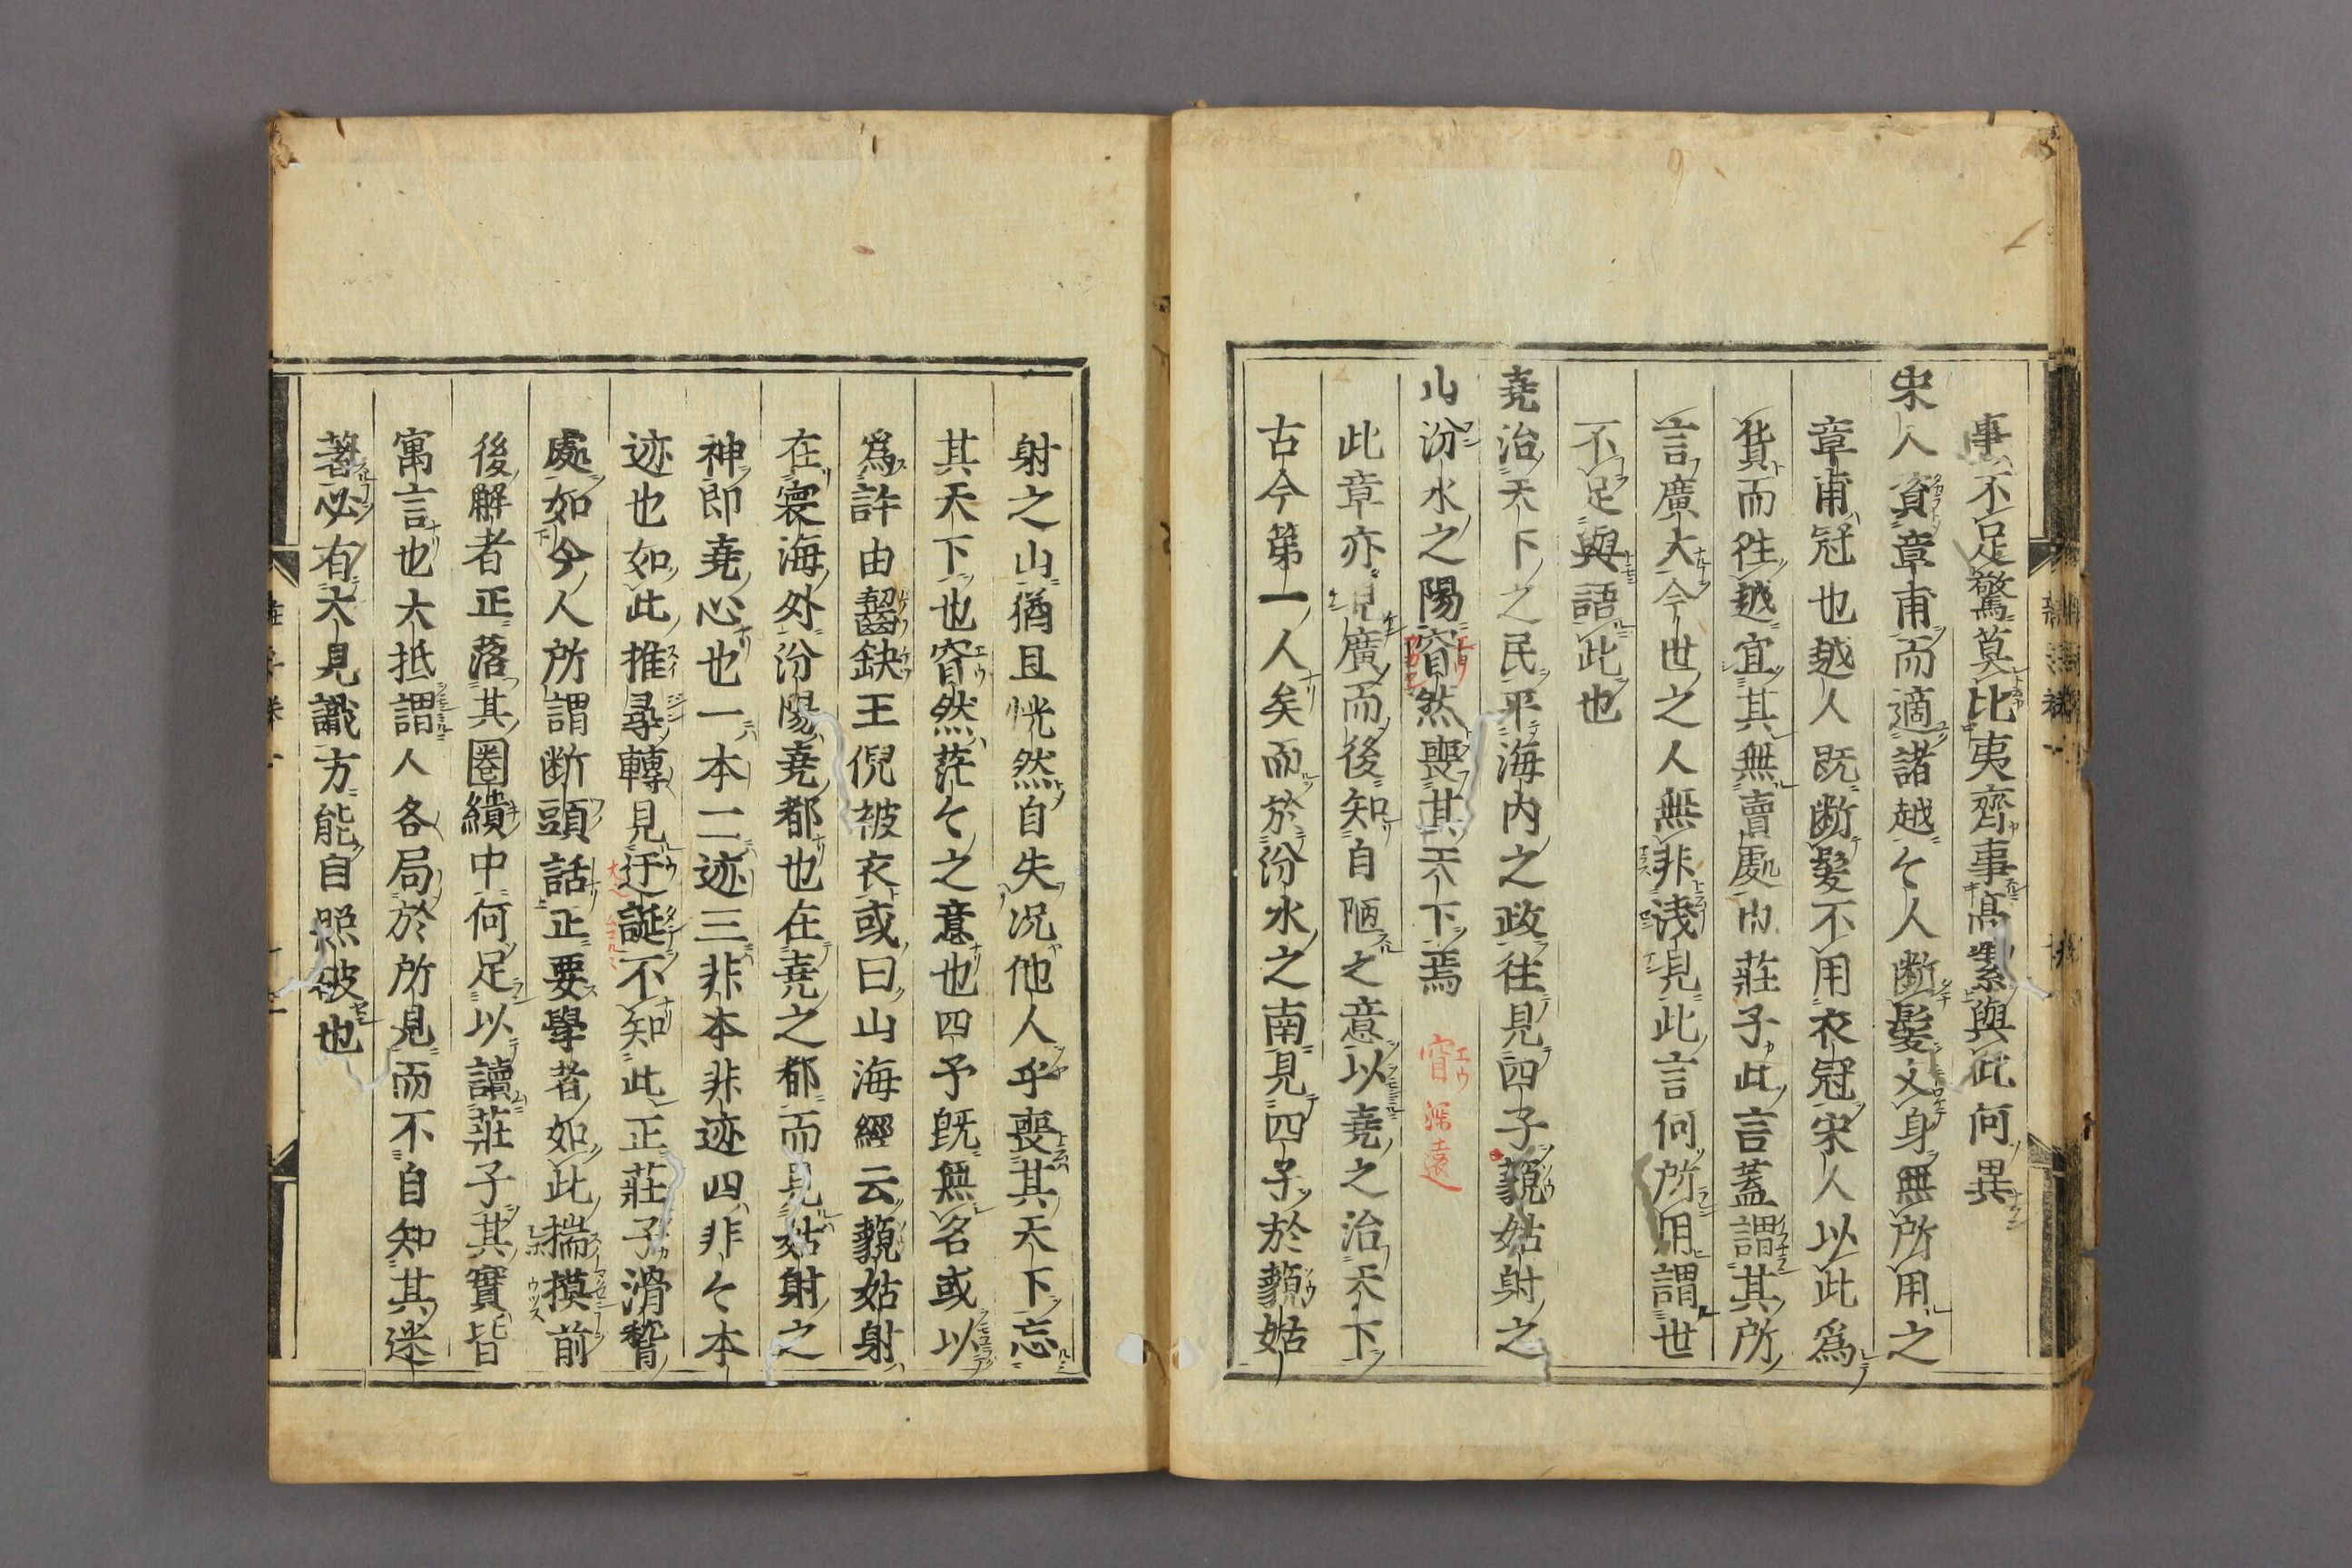 事不足驚莫比夷齊事高絜與此何異
宋人資章甫而適諸越〻人斷髮文身無所用之
章甫冠也越人既断髮不用衣冠宋人以此爲
貨而徃越宜其無賣處也莊子此言蓋謂其所
言廣大今世之人無非淺見此言何所用謂世
不足與語此也
堯治天下之民平海内之政往見四子藐姑射之
山汾水之陽窅然喪其天下焉
窅 深遠
此章亦見廣而後知自陋之意以堯之治天下
古今第一人矣而於汾水之南見四子於藐姑
射之山猶且恍然自失况他人乎喪其天下忘
其天下也窅然茫〻之意也四子既無名或以
爲許由齧缺王倪被衣或曰山海經云藐姑射
在寰海外汾陽堯都也在堯之都而見姑射之
神即堯心也一本二迹三非本非迹四非〻本
迹也如此推尋轉見迂誕不知此正莊子滑稽
處如今人所謂断頭話正要學者如此揣摸前
後解者正落其圈繢中何足以讀莊子其實皆
寓言也大抵謂人各局於所見而不自知其迷
著必有大見識方能自照破也